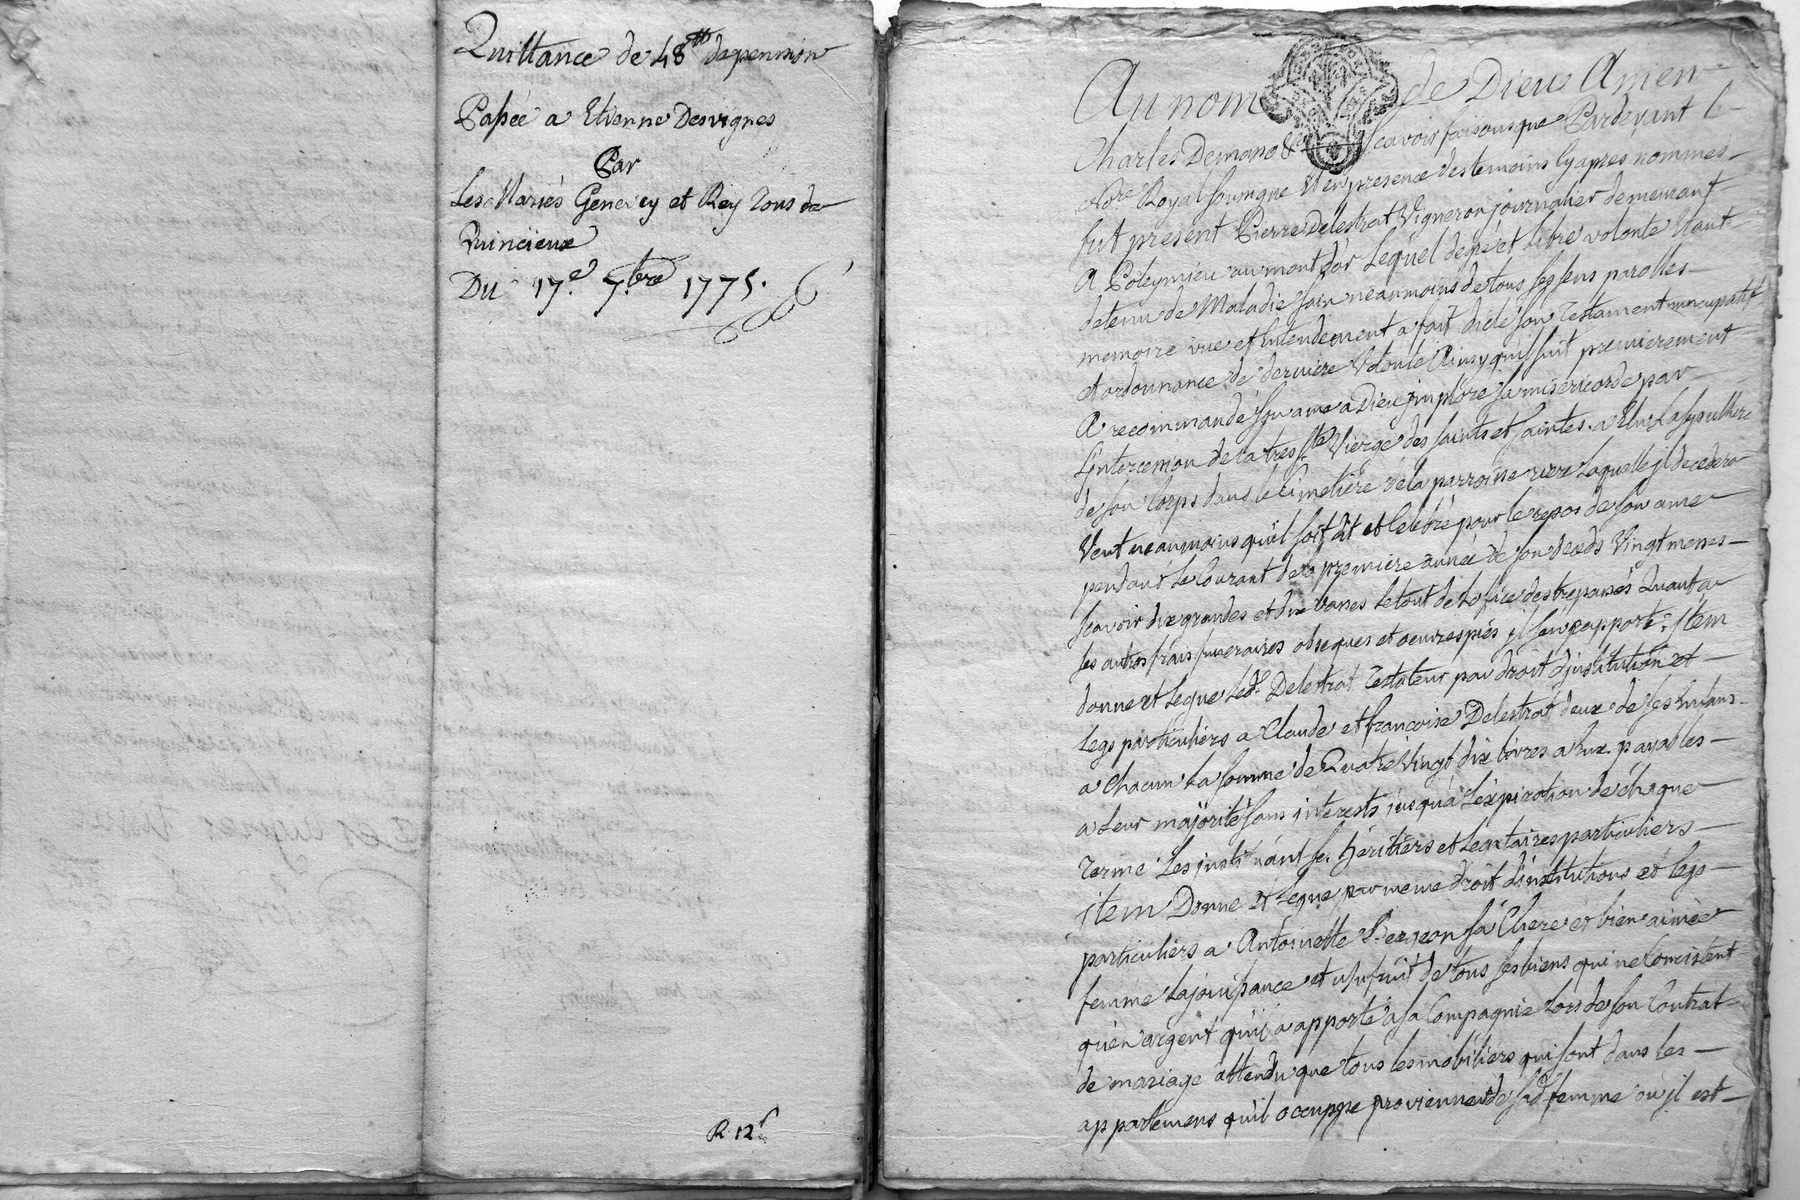 Quittance de 48tt de pension
Passée a Etienne Desvignes
Par
Les Mariés Genevey et Rey Tous de
Quincieux
Du 17e 7bre 1775.
R 12s
Au nom de Dieu Amen
Charles Demano scavoir faisons que Pardevant le
Nore Royal sousigné et en presence des temoins cy apres nommes
fut present Pierre Delestrat Vigneron journalier demeurant
A Poleymieu au mont d'or Lequel de gré et libre volonté Etant
detenu de Maladie sain néanmoins de tous ses sens parolles
memoire vue et Entendement a fait dicté son Testament nuncupatif
et ordonnance de derniere volonté Ainsy qu'il suit premierement
A recommandé son ame a Dieu implore sa misericorde par
L'intercession de la tres Ste Vierge des saints et saintes. a Elu La sepulture
de son Corps dans le Cimetiere de la parroisse riere Laquelle il decedera
Veut neanmoins qu'il soit dit et Celebré pour le repos de son ame
pendant Le Courant de la premiere année de son deceds Vingt messes
scavoir dix grandes et dix basses Le tout de L'office des trepassés Quant a
les autres frais funeraires obseques et oeuvres piés il s'en rapporte. Item
donne et Legue Ledt. Delestrat Testateur par droit d'institution et
Legs particuliers a Claude et francoise Delestrat deux de ses Enfans
a Chacun La somme de Quatre Vingt dix livres a Eux payables
a Leur majorité sans interests jusqu'a L'expiration de chaque
Terme Les instituant ses héritiers et Legataires particuliers
item Donne Et Legue par meme droit d'institutions et legs
particuliers a Antoinette Bergeon sa Chere et bien aimée
femme La jouissance et usufruit de tous ses biens qui ne Consistent
qu'en argent qu'il a apporté a sa Compagnie Lors de son Contrat
de mariage attendu que tous les mobiliers qui sont dans les
appartemens qu'il occuppe proviennent de sad femme ou il est